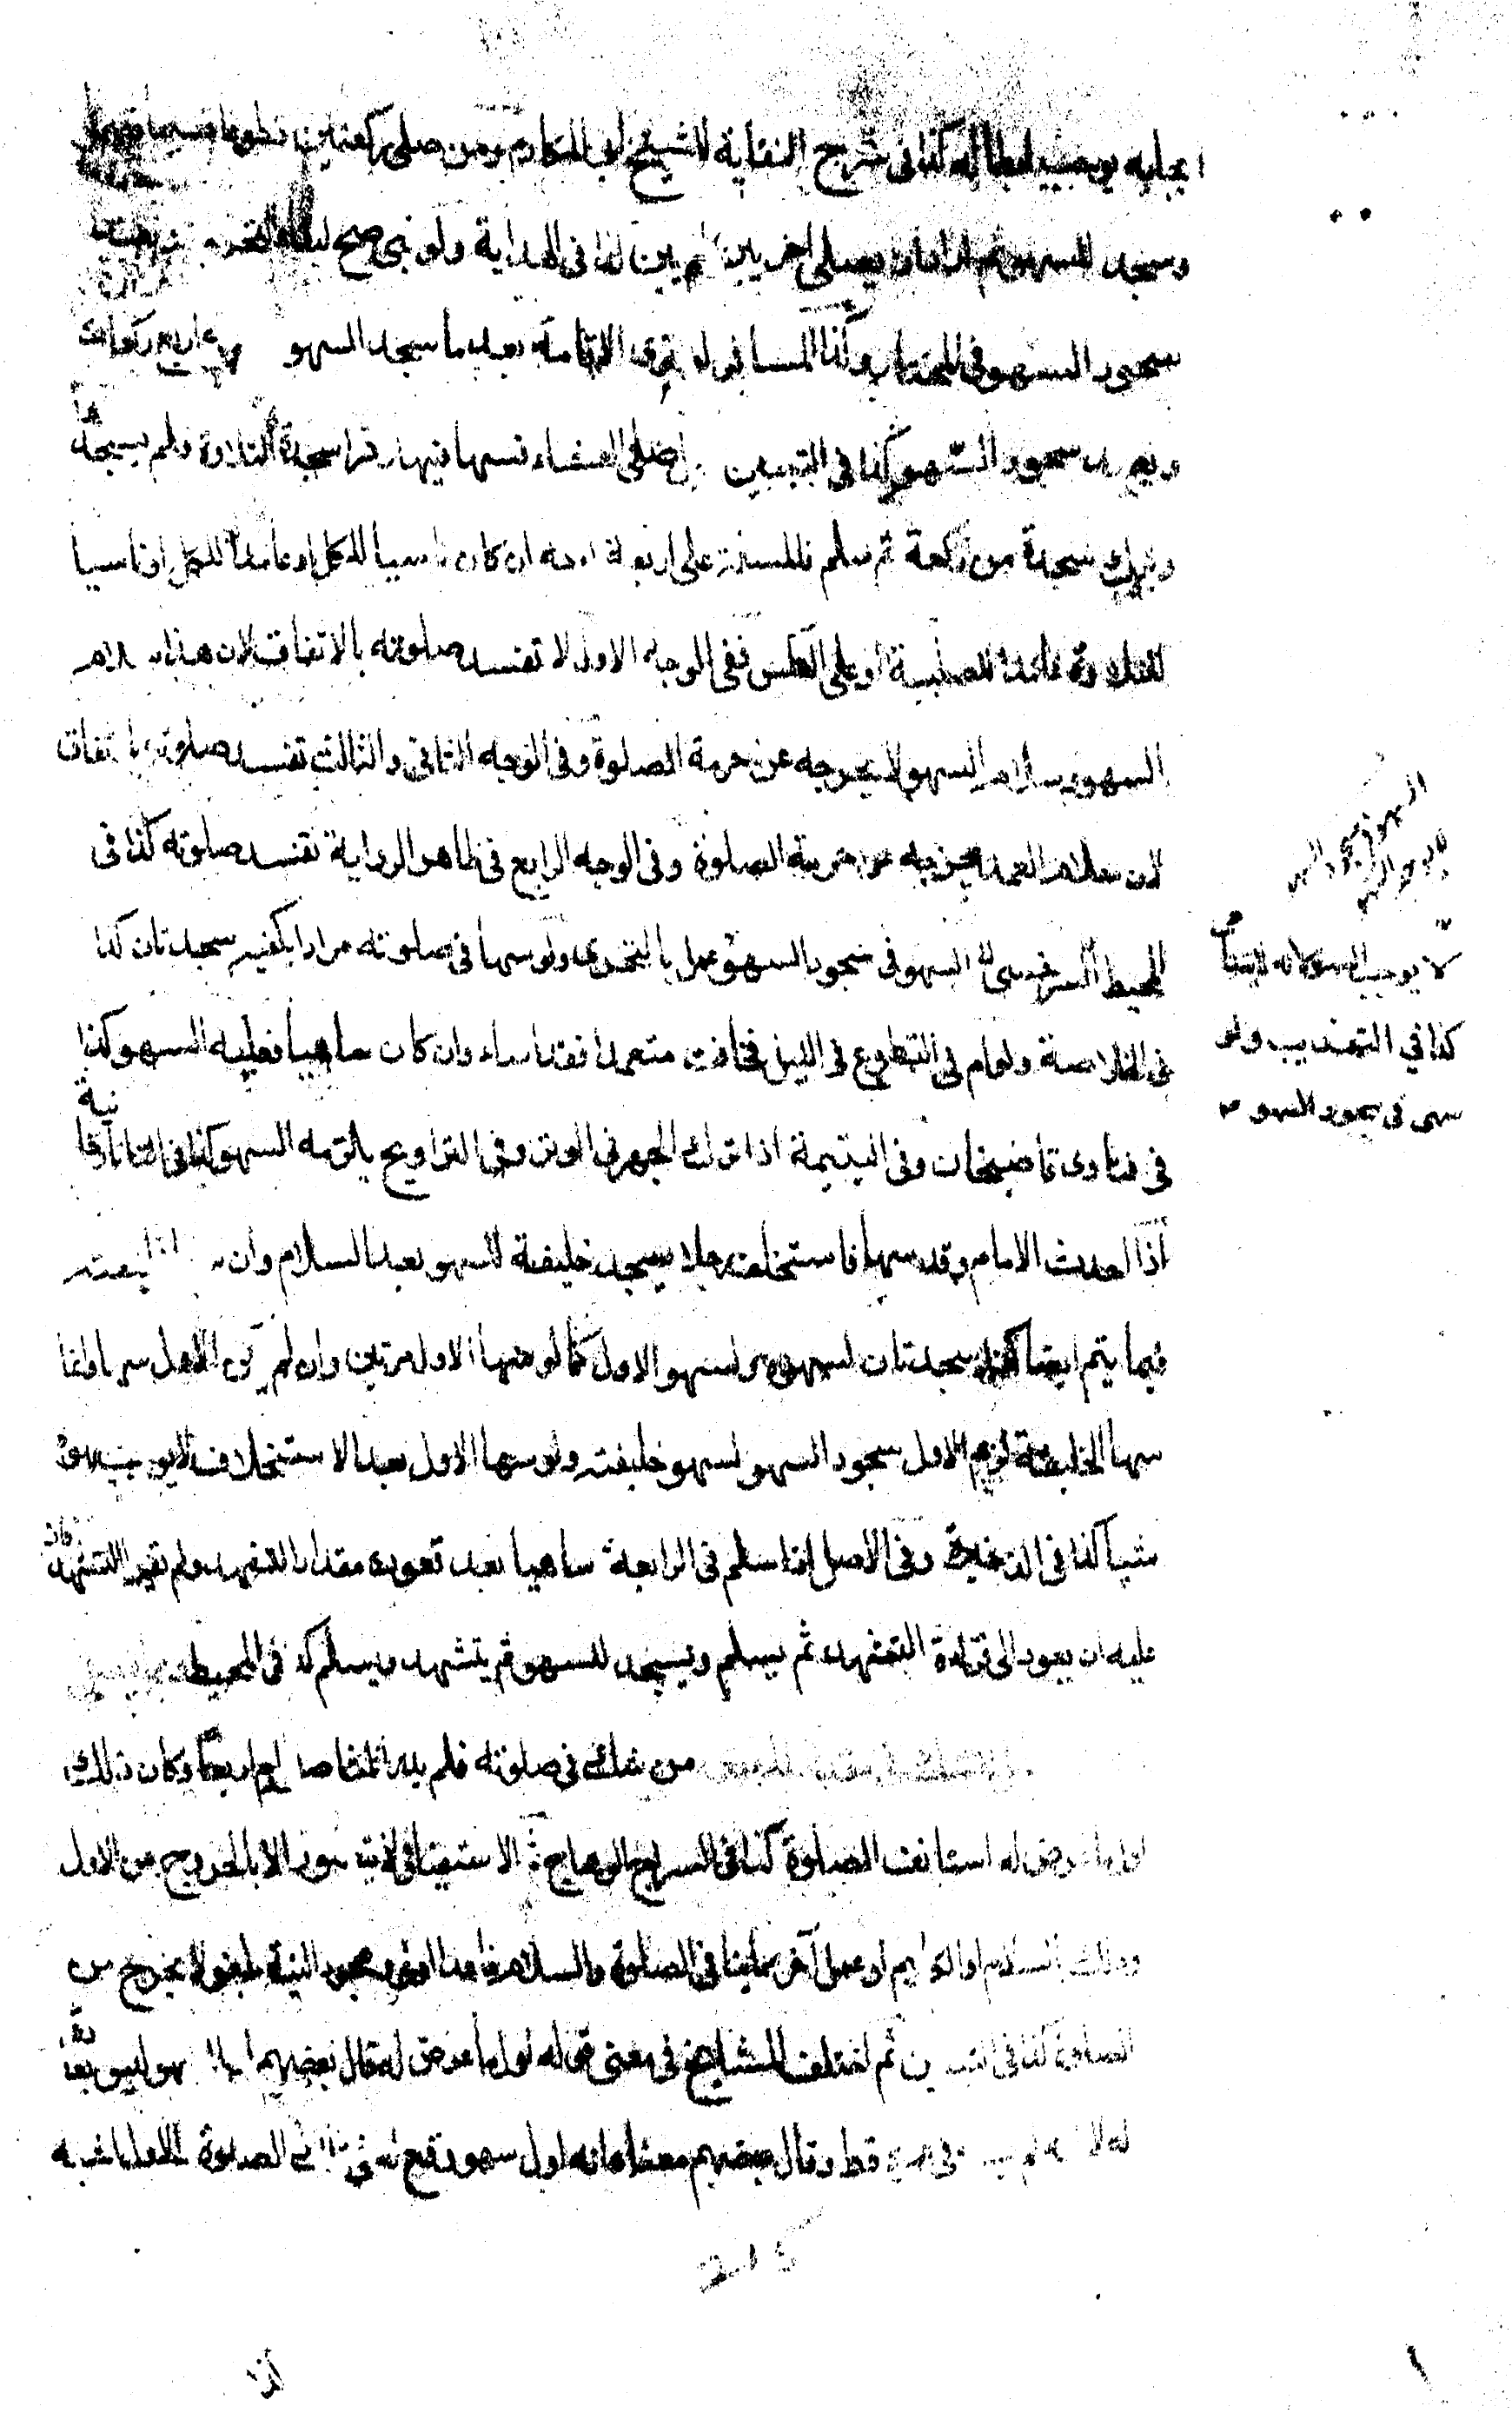 ايجابه يوجب ابطاله كذا فى شرح النقاية للشيخ ابى المكارم ومن صلى ركعتين تطوعا فسها فيهما
وسجد للسهو ثم اراد ان يصلى اخريين لم يبن كذا فى الهداية ولو بنى صح لبقاء التحريمة
سجود السهو فى المختار وكذا المسافر اذا نوى الاقامة بعد ما سجد للسهو اربع ركعات
ويعيد سجود السهو كذا فى التبيين صلى العشاء فسها فيها وقرا سجدة التلاوة ولم يسجدها
وترك سجدة من ركعة ثم سلم فالمسئلة على اربعة اوجه ان كان ناسيا للكل او عامدا للكل او ناسيا
للتلاوة عامدا للصلبية او على العكس ففى الوجه الاول لا تفسد صلوته بالاتفاق لان هذا سلام
السهو وسلام السهو لا يخرجه عن حرمة الصلوة وفى الوجه الثانى والثالث تفسد صلوته باتفاق
لان سلام العمد يخرجه عن حرمة الصلوة وفى الوجه الرابع فى ظاهر الرواية تفسد صلوته كذا فى
المحيط السرخسى السهو فى سجود السهو عمل بالتحرى ولو سها فى صلوته مرارا يكفيه سجدتان كذا
لا يوجب السهو لانه
كذا في التهذيب ولو
سهى في سجود السهو
فى الخلاصة ولو ام فى التطوع فى الليل فخافت متعمدا فقد اساء وان كان ساهيا فعليه السهو كذا
فى فتاوى قاضيخان وفى اليتيمة اذا ترك الجهر فى الوتر وفى التراويح يلزمه السهو كذا فى التاتارخانية
اذا احدث الامام وقد سها فاستخلف رجلا يسجد خليفته للسهو بعد السلام وان خليفته
فيما يتم ايضا كفاه سجدتان لسهوه ولسهو الاول كما لو سها الاول مرتين وان لم يكن الاول سها وانما
سها الخليفة لزم الاول سجود السهو لسهو خليفته ولو سها الاول بعد الاستخلاف لا يوجب سهوه
شيأ كذا فى الذخيرة وفى الاصل اذا سلم فى الرابعة ساهيا بعد قعوده مقدار التشهد ولم يقرا التشهد فان
عليه ان يعود الى قراءة التشهد ثم يسلم ويسجد للسهو ثم يتشهد ويسلم كذا فى المحيط
من شك فى صلوته فلم يدر اثلثا صلى ام اربعا وكان ذلك
اول ما عرض له استانف الصلوة كذا فى السراج الوهاج ثم الاستيناف لا يتصور الا بالخروج عن الاول
وذلك بالسلام او الكلام او عمل آخر مما ينافى الصلوة والسلام قاعدا اولى ومجرد النية يلغو لا يخرج من
الصلوة كذا فى التبيين ثم اختلف المشايخ فى معنى قوله اول ما عرض له فقال بعضهم ان السهو ليس بعادة
له لا انه لم يسه فى عمره قط وقال بعضهم معناه انه اول سهو وقع له فى تلك الصلوة والاول اشبه